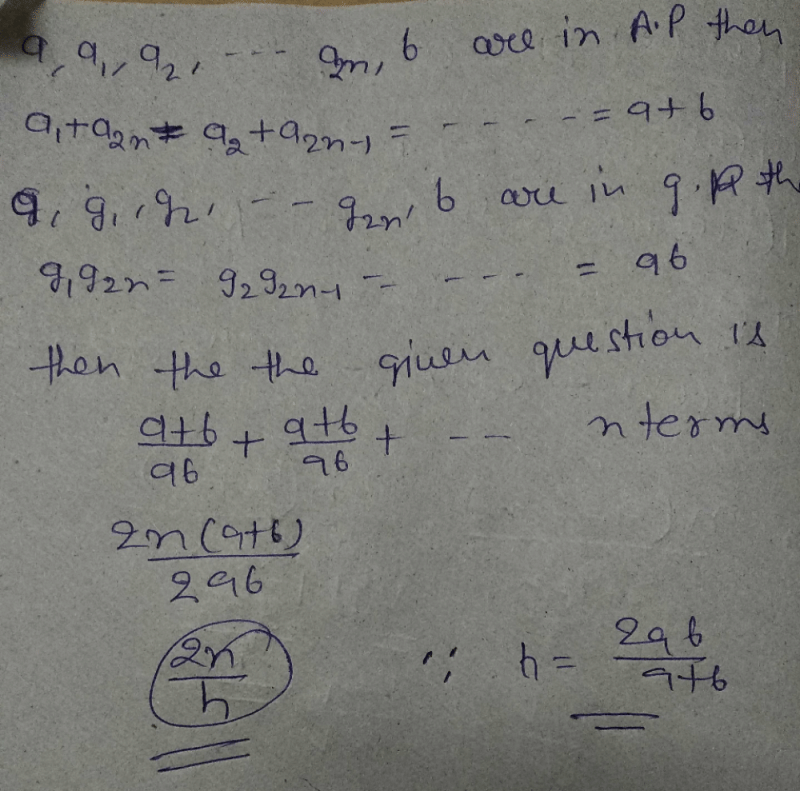 a, a₁, a₂, --- a₂ₙ, b are in A.P then
a₁+a₂ₙ = a₂+a₂ₙ₋₁ = - - - - - = a+b
g, g₁, g₂, - - g₂ₙ, b are in g.p th
g₁g₂ₙ = g₂g₂ₙ₋₁ = - - - - = ab
then the the given question is
(a+b)/(ab) + (a+b)/(ab) + - - - n terms
2n(a+b)/(2ab)
2n/h ∵ h = 2ab/(a+b)